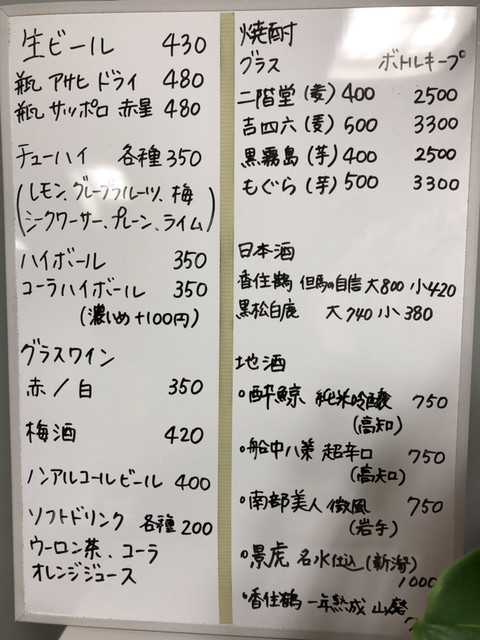 生ビール 430
瓶ビ アサヒ ドライ 480
瓶ビ サッポロ 赤星 480
チューハイ 各種 350
(レモン、グレープフルーツ、梅
シークワーサー、プレーン、ライム)
ハイボール 350
コーラハイボール 350
(濃いめ +100円)
グラスワイン
赤/白 350
梅酒 420
ノンアルコールビール 400
ソフトドリンク 各種 200
ウーロン茶、コーラ
オレンジジュース
焼酎
グラス ボトルキープ
二階堂 (麦) 400 2500
吉四六 (麦) 500 3300
黒霧島 (芋) 400 2500
もぐら (芋) 500 3300
日本酒
香住鶴 但馬の自信 大800 小420
黒松白鹿 大740 小380
地酒
・酔鯨 純米吟醸 750
(高知)
・船中八策 超辛口 750
(高知)
・南部美人 微風 750
(岩手)
・景虎 名水仕込 (新潟)
1000
・香住鶴 一年熟成 山廃